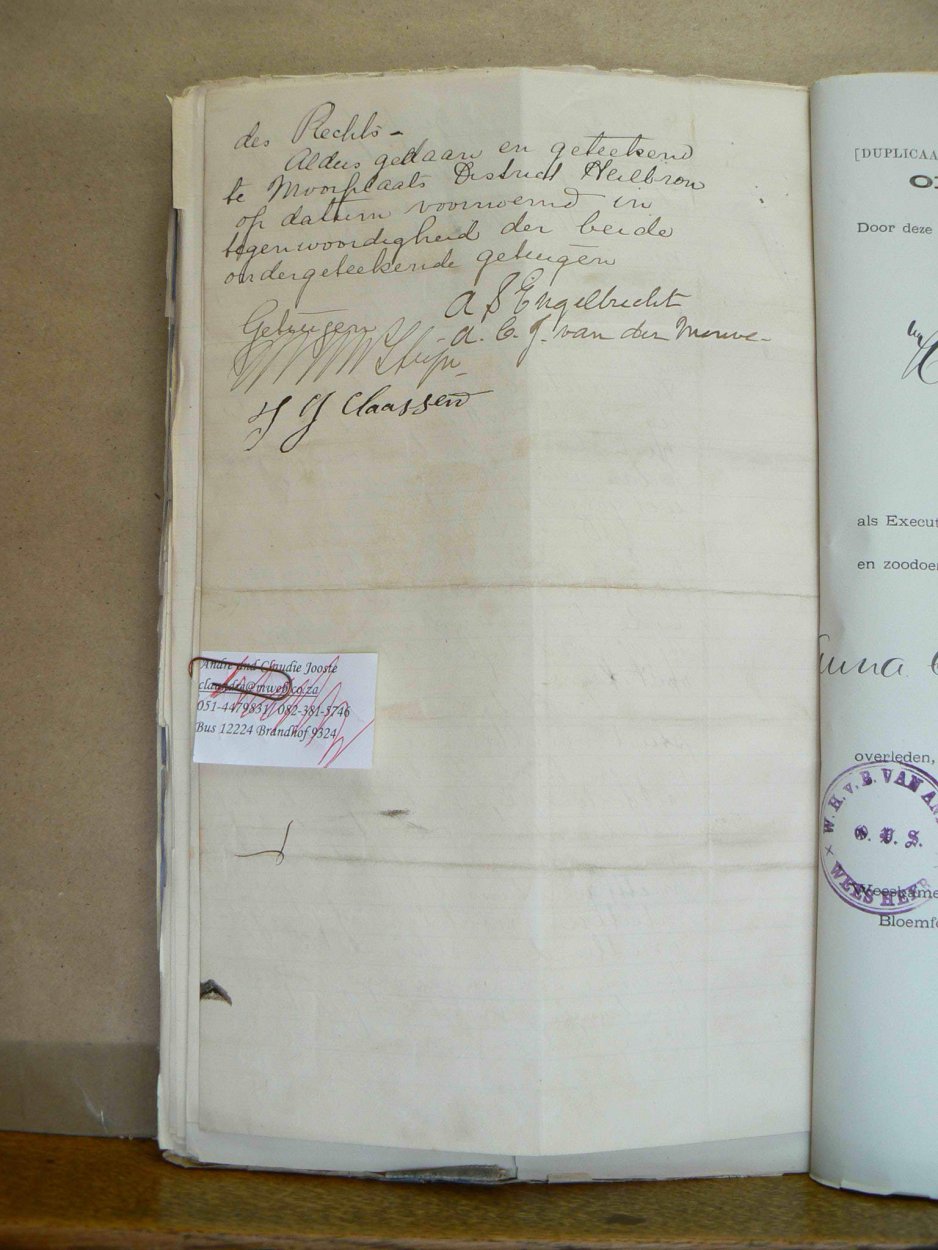 des Rechts -
Aldus gedaan en geteekend
te Mooiplaats District Heilbron
op datum voornoemd in
tegenwoordigheid der beide
ondergeteekende getuigen
A S Engelbrecht
Getuigen
A. C. J. van der Merwe -
J J Claassen
Andre and Claudie Jooste
051-4479831 / 082-381-5746
Bus 12224 Brandhof 9324
[DUPLICAA
Door deze
als Execut
en zoodoe
overleden,
W. H. v. B. VAN AN
O. V. S.
WEESHEER
Weeskame
Bloemf